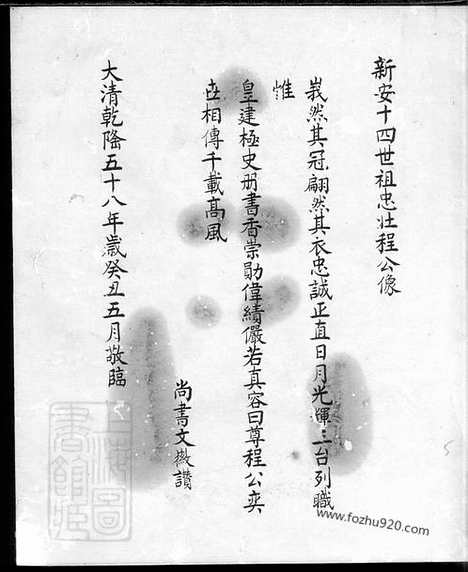 新安十四世祖忠壮程公像
峩然其冠翩然其衣忠誠正直日月光輝三台列職
惟
皇建極史册書香崇勛偉績儼若真容曰尊程公奕
世相傳千載高風
尚書文徵讚
大清乾隆五十八年歲癸丑五月敬臨
上海圖書館藏
www.fozhu920.com